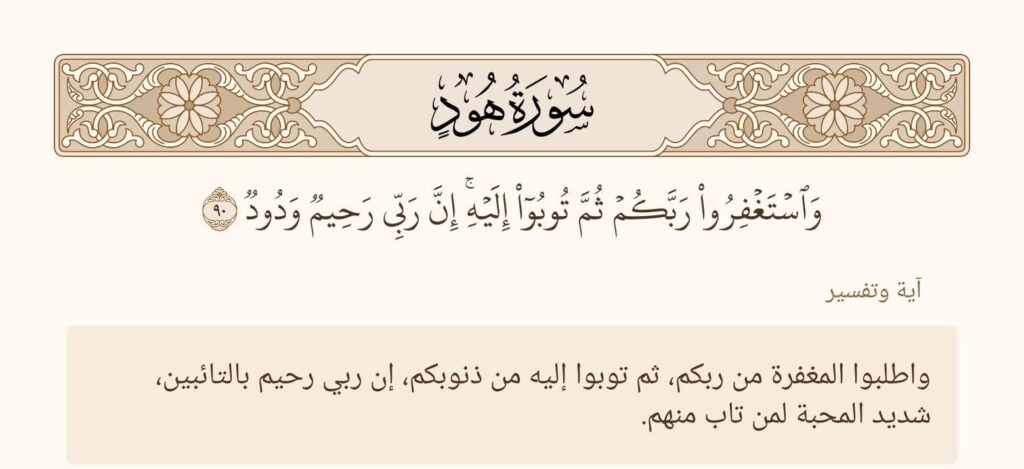 سُورَةُ هُودٍ
وَٱسۡتَغۡفِرُواْ رَبَّكُمۡ ثُمَّ تُوبُوٓاْ إِلَيۡهِۚ إِنَّ رَبِّي رَحِيمٞ وَدُودٞ ٩٠
آية وتفسير
واطلبوا المغفرة من ربكم، ثم توبوا إليه من ذنوبكم، إن ربي رحيم بالتائبين،
شديد المحبة لمن تاب منهم.